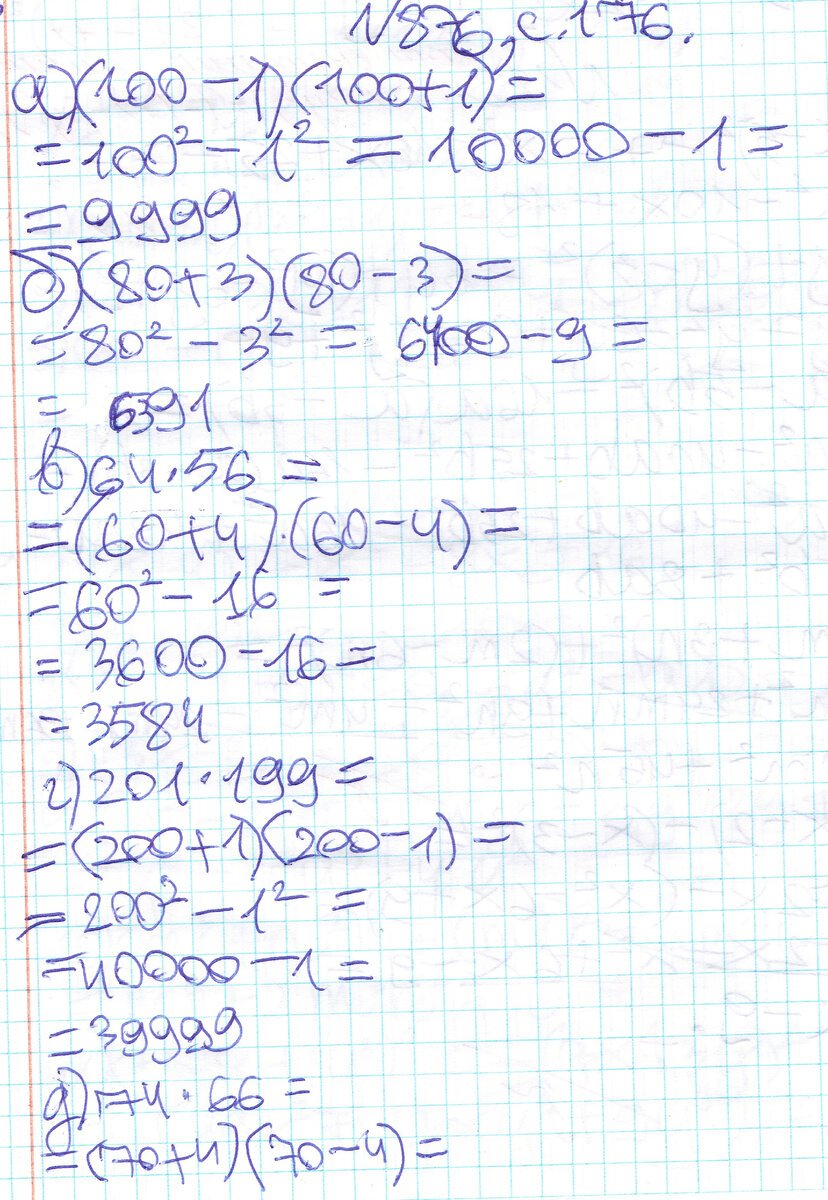 №876, с.176.
а)(100-1)(100+1)=
=100²-1²=10000-1=
=9999
б)(80+3)(80-3)=
=80²-3²= 6400-9=
= 6391
в)64·56=
=(60+4)·(60-4)=
=60²-16=
=3600-16=
=3584
г)201·199=
=(200+1)(200-1)=
=200²-1²=
=40000-1=
=39999
д)74·66=
=(70+4)(70-4)=